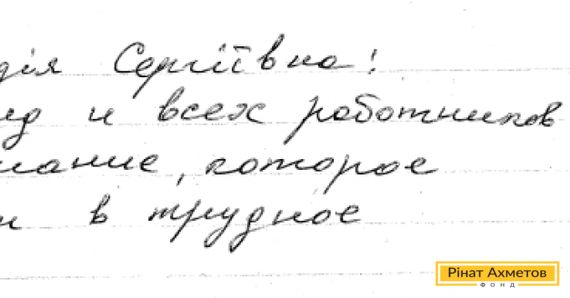 дія Сергіївна!
нд и всех работников
мание, которое
и в трудное
Рінат Ахметов
ФОНД